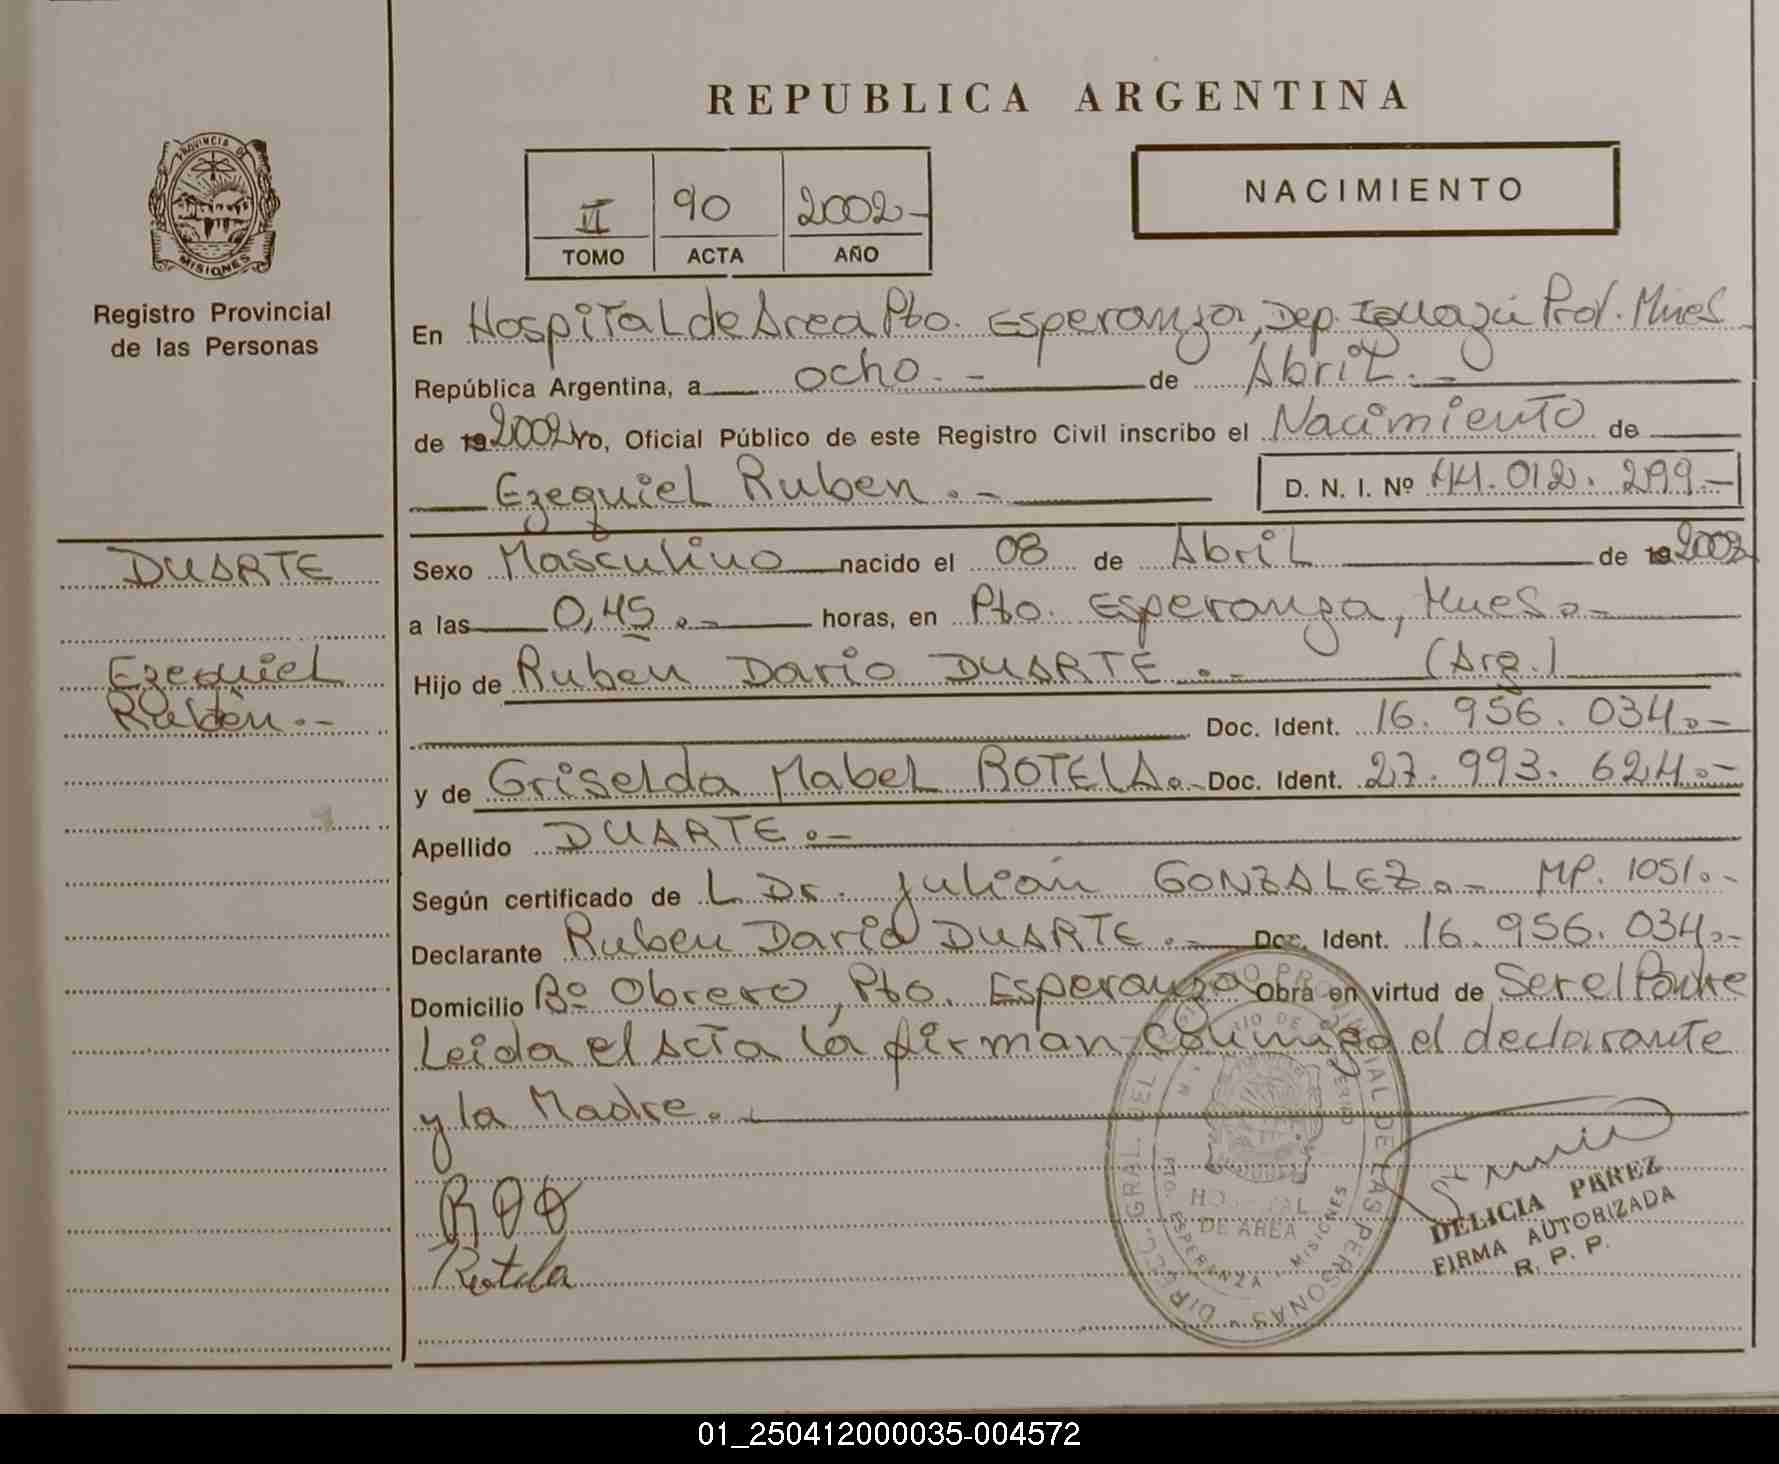 REPUBLICA ARGENTINA
PROVINCIA DE
MISIONES
Registro Provincial
de las Personas
II 90 2002-
TOMO ACTA AÑO
NACIMIENTO
En Hospital de Area Pto. Esperanza, Dep. Iguazú Prov. Mnes
República Argentina, a ocho.- de Abril.-
de 19 2002 Yo, Oficial Público de este Registro Civil inscribo el Nacimiento de
Ezequiel Ruben.- D. N. I. Nº 44.012.299-
DUARTE
Ezequiel
Rubén.-
Sexo Masculino nacido el 08 de Abril de 19 2002
a las 0,45.- horas, en Pto. Esperanza, Mnes.-
Hijo de Ruben Dario DUARTE.- (Arg.)
Doc. Ident. 16.956.034.-
y de Griselda Mabel ROTELA. Doc. Ident. 27.993.624.-
Apellido DUARTE.-
Según certificado de L Dr. Julián GONZALEZ.- MP. 1051.-
Declarante Ruben Dario DUARTE.- Doc. Ident. 16.956.034.-
Domicilio Bº Obrero, Pto. Esperanza Obra en virtud de Ser el Padre
Leida el Acta la firman conmigo el declarante
y la Madre.-
Rotela
DIREC. GRAL. DEL REGISTRO PROVINCIAL DE LAS PERSONAS
HOSPITAL
DE AREA
PTO. ESPERANZA - MISIONES
DELICIA PAREZ
FIRMA AUTORIZADA
R. P. P.
01_250412000035-004572